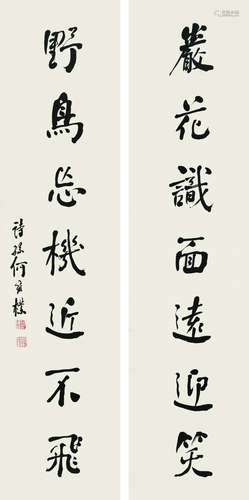 巖花識面遠迎笑
野鳥忘機近不飛
詩孫何維樸